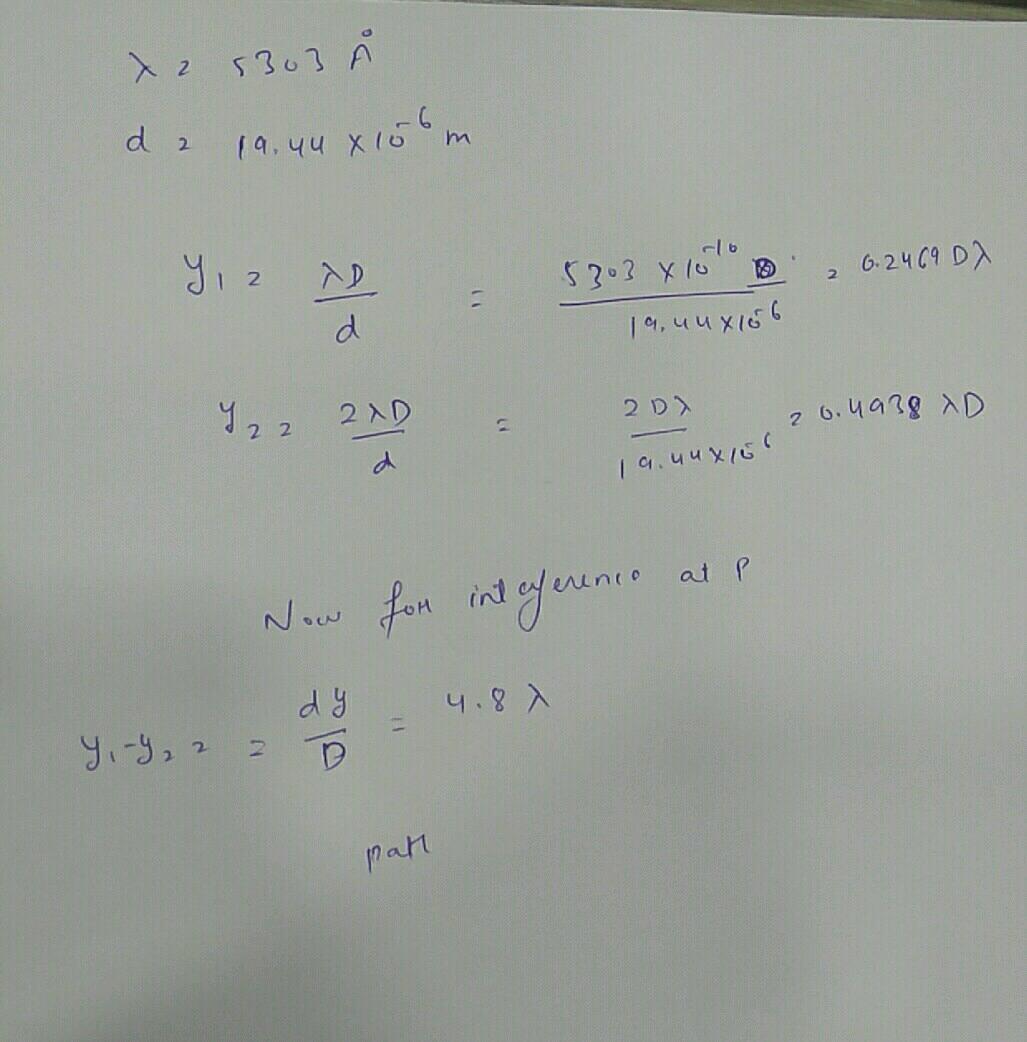 λ = 5303 Å
d = 19.44 × 10⁻⁶ m
y₁ = λD/d = 5303 × 10⁻¹⁰ D/19.44×10⁻⁶ = 0.2469 Dλ
y₂ = 2λD/d = 2Dλ/19.44×10⁻⁶ = 0.4938 λD
Now for interference at P
y₁-y₂ = = dy/D = 4.8 λ
path